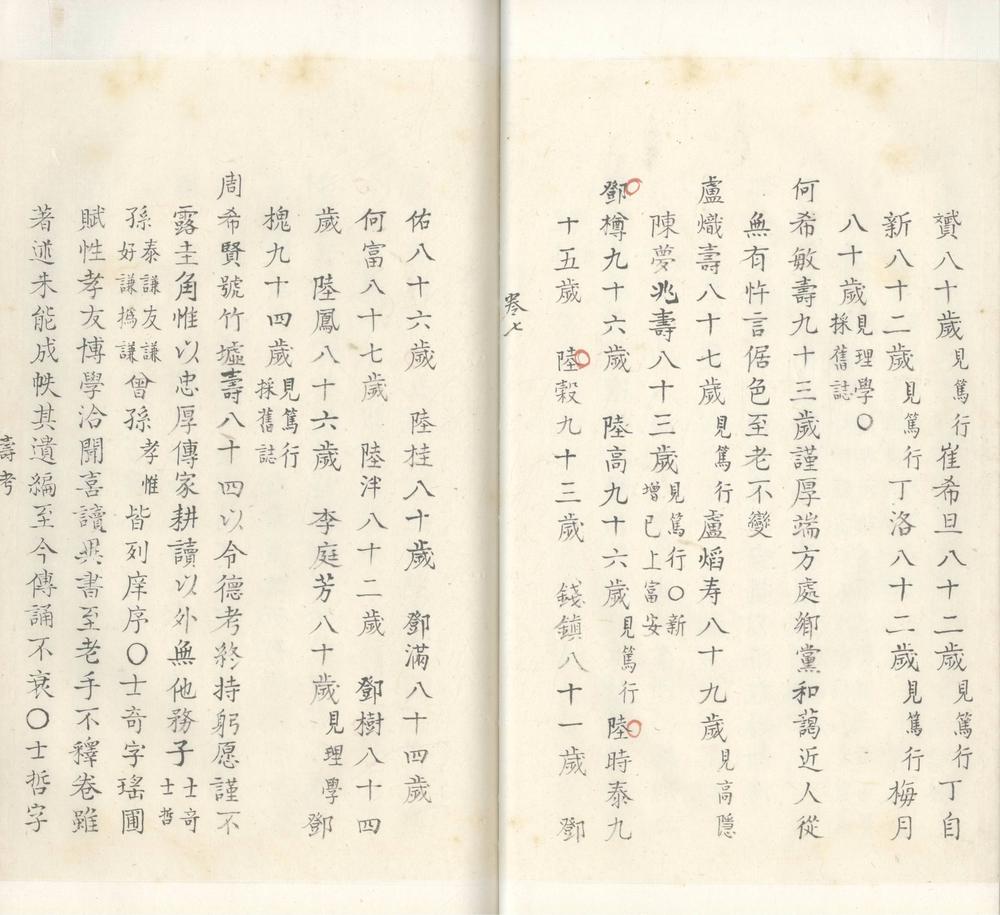 贇八十歲見篤行崔希旦八十二歲見篤行丁自
新八十二歲見篤行丁洛八十二歲見篤行梅月
八十歲見理學採舊誌〇
何希敏壽九十三歲謹厚端方處鄉黨和藹近人從
無有忤言倨色至老不變
盧熾壽八十七歲見篤行盧熖寿八十九歲見高隱
陳夢兆壽八十三歲見篤行〇新增已上富安
鄧樽九十六歲 陸高九十六歲見篤行陸時泰九
十五歲 陸穀九十三歲 錢鎮八十一歲 鄧
卷七
佑八十六歲 陸桂八十歲 鄧滿八十四歲
何富八十七歲 陸泮八十二歲 鄧樹八十四
歲 陸鳳八十六歲 李庭芳八十歲見理學鄧
槐九十四歲見篤行採舊誌
周希賢號竹墟壽八十四以令德考終持躬愿謹不
露圭角惟以忠厚傳家耕讀以外無他務子士奇士哲
孫泰謙友謙好謙撝謙曾孫惟孝皆列庠序〇士奇字瑤圃
賦性孝友博學洽聞喜讀異書至老手不釋卷雖
著述未能成帙其遺編至今傳誦不衰〇士哲字
壽考